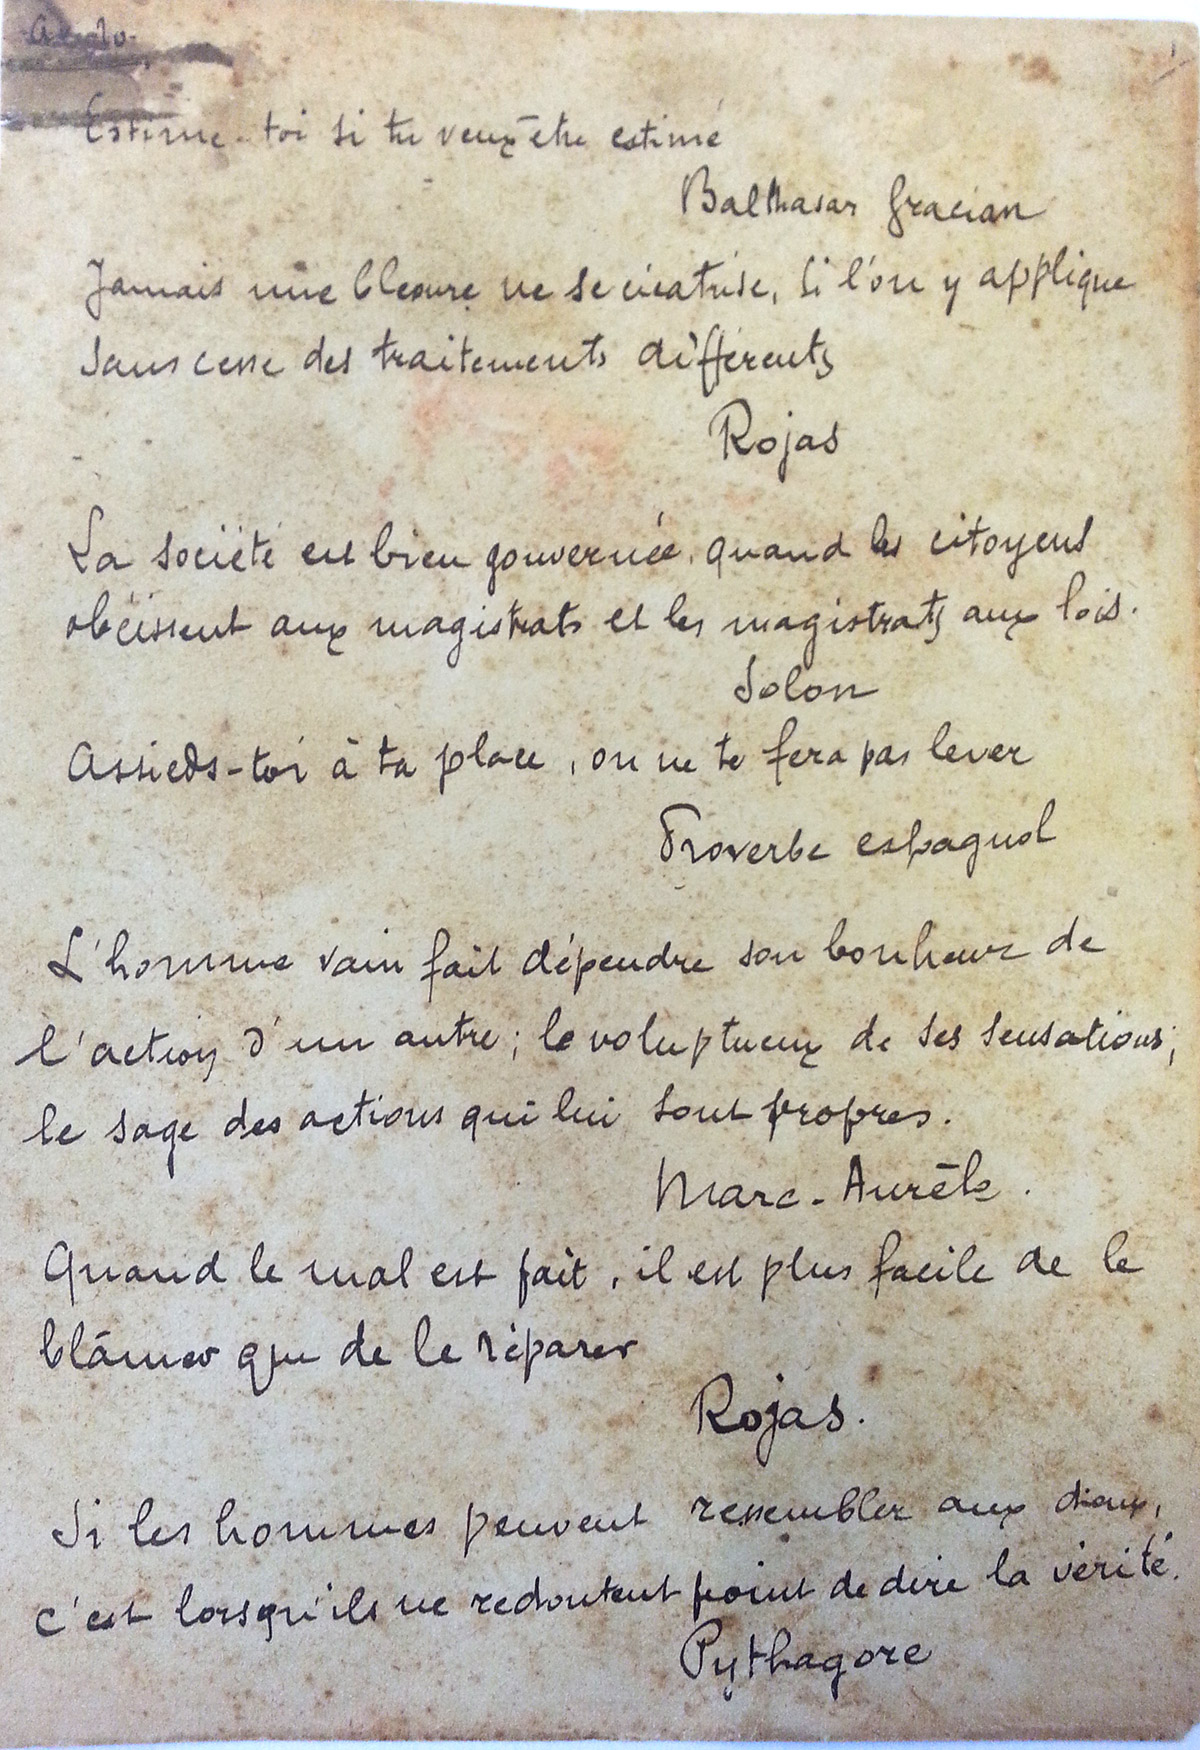 Estime-toi si tu veux être estimé
Balthasar Gracian
Jamais une blessure ne se cicatrise, si l'on y applique
sans cesse des traitements différents
Rojas
La société est bien gouvernée, quand les citoyens
obéissent aux magistrats et les magistrats aux lois.
Solon
Assieds-toi à ta place, on ne te fera pas lever
Proverbe espagnol
L'homme vain fait dépendre son bonheur de
l'action d'un autre; le voluptueux de ses sensations;
le sage des actions qui lui sont propres.
Marc-Aurèle.
Quand le mal est fait, il est plus facile de le
blâmer que de le réparer
Rojas.
Si les hommes peuvent ressembler aux dieux,
c'est lorsqu'ils ne redoutent point de dire la vérité.
Pythagore